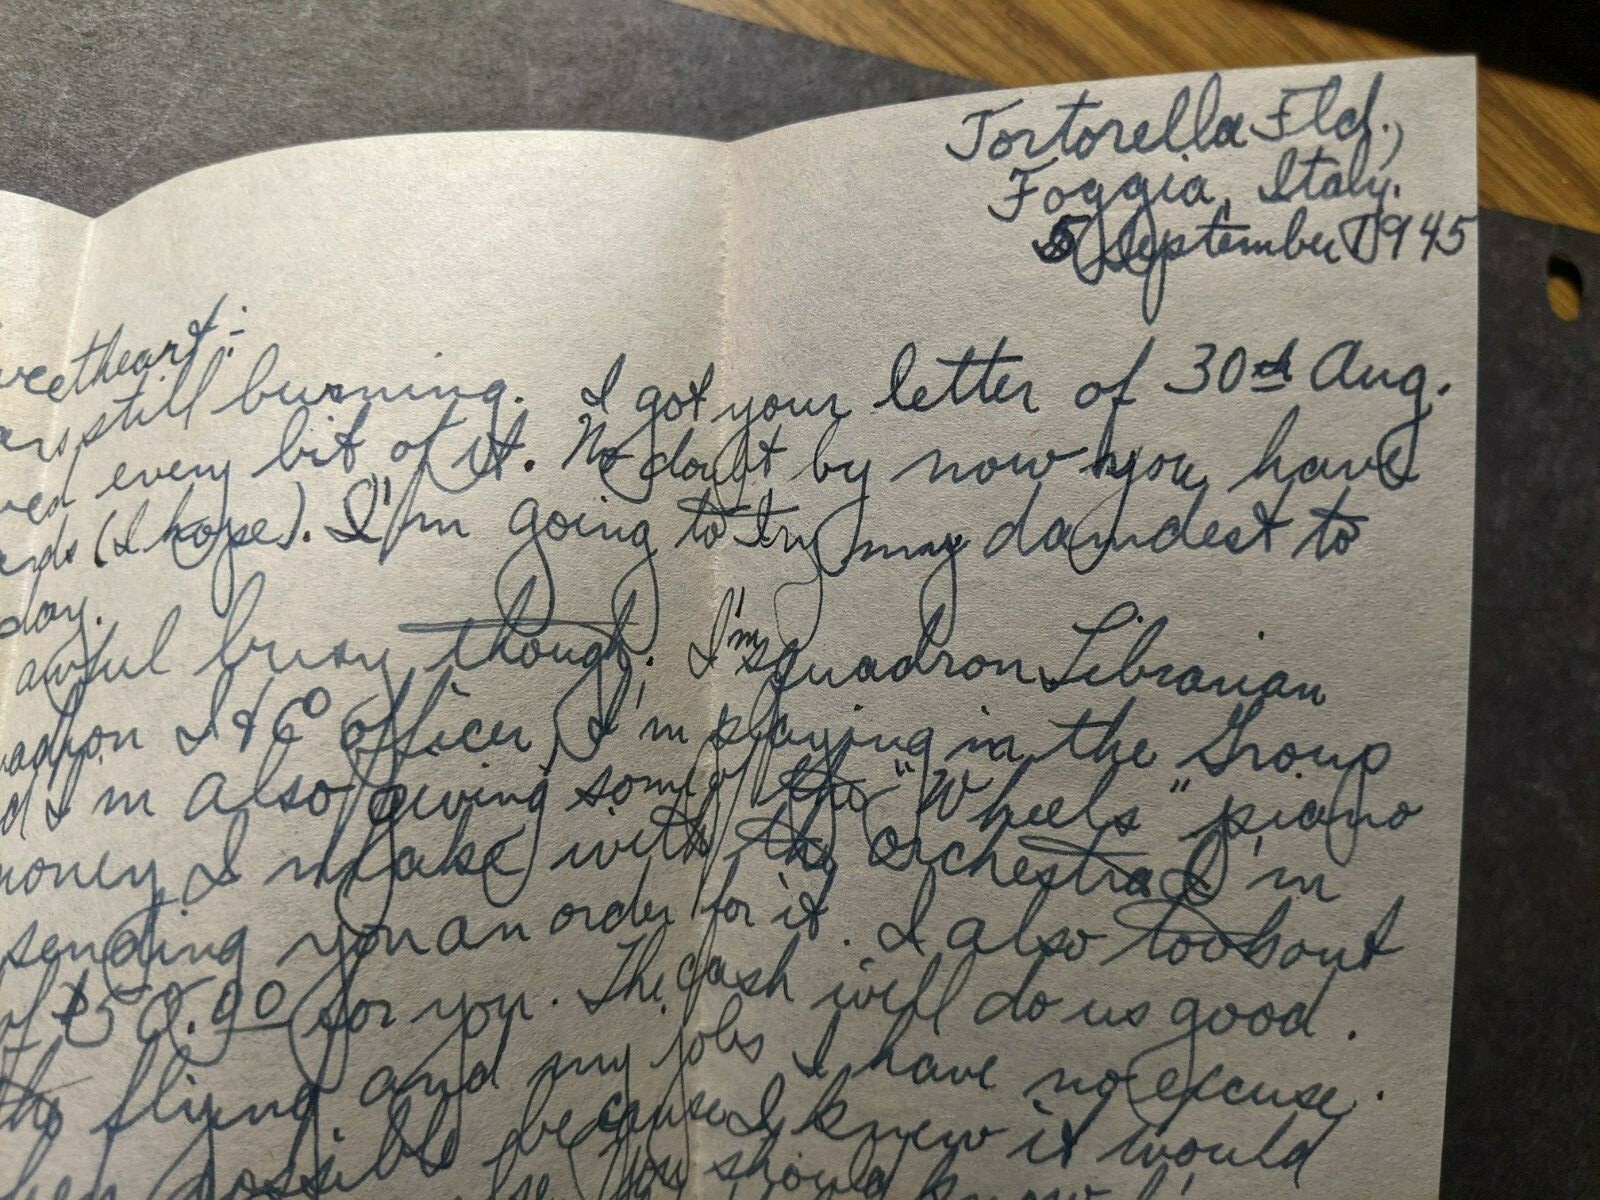 Tortorella Fld.,
Foggia, Italy.
5 September 1945
weetheart:-
ars still burning. I got your letter of 30th Aug.
ved every bit of it. No doubt by now you have
ards (I hope). I'm going to try my darndest to
day.
awful busy though. I'm squadron Librarian
uadron I & E Officer, I'm playing in the Group
d I'm also giving some of the "Wheels" piano
money I make with the orchestra I'm
sending you an order for it. I also took out
of $50.00 for you. The cash will do us good.
the flying and my jobs I have no excuse.
hen possible because I knew it would
You should know I